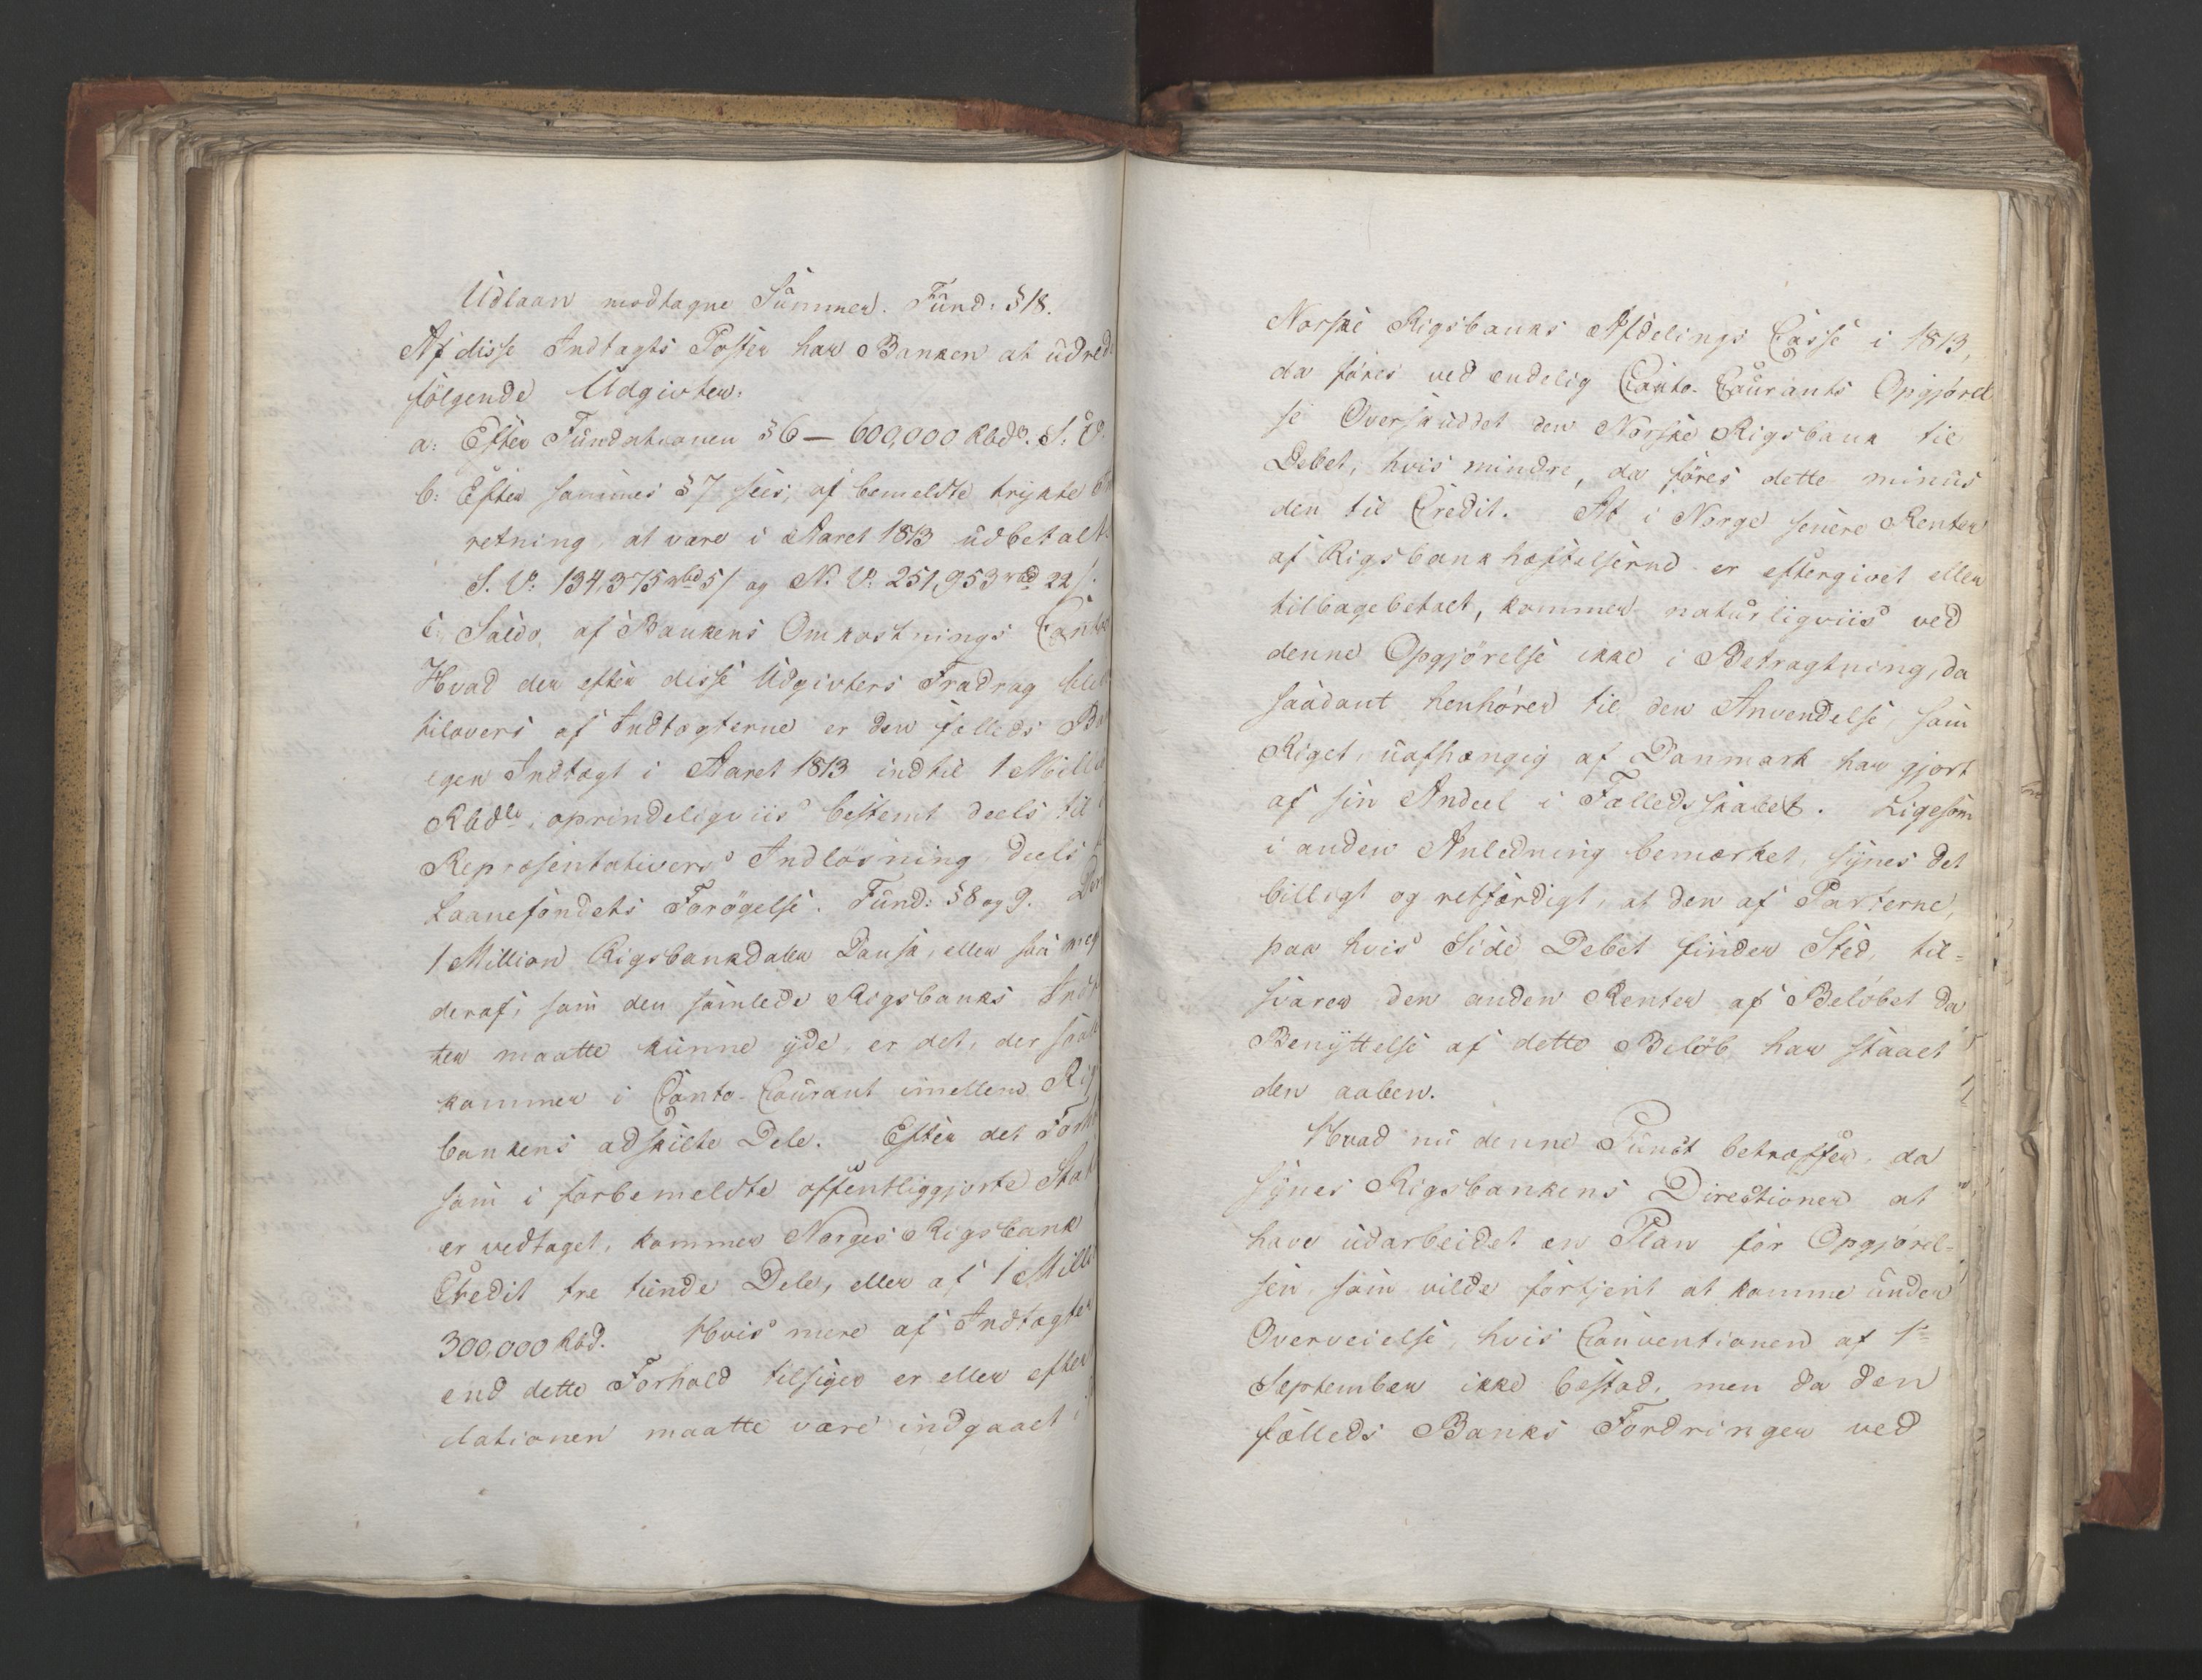 Udlaan modtagne Summer. Fund: §18.
Af disse Indtægts Poster har Banken at udrede
følgende Udgivter:
a: Efter Fundationen §6 — 600,000 Rbdr. S. V.
b: Efter sammes §7 sees, af bemeldte trykte
retning, at være i Aaret 1813 udbetalt
S. V. 134,375 rbd 5/ og N. V. 251,953 rbd 22/.
c: Saldo, af Bankens Omkostnings Conto
Hvad der efter disse Udgivters Fradrag
tilovers af Indtægterne er den fælleds
egen Indtægt i Aaret 1813 indtil 1 Million
Rbdlr, oprindeligviis bestemt deels til
Repræsentativers Indløsning, deels
Laanefondets Forøgelse. Fund: §8 og 9.
1 Million Rigsbankdaler Dansk, eller saa meget
deraf, som den samlede Rigsbanks
ter maatte kunne yde, er det, der
kommer i Conto-Courant imellem
bankens adskilte Dele. Efter det
som i forbemeldte offentliggjorte
er vedtaget, kommer Norges Rigsbank
Credit tre tiende Dele, eller af 1 Million
300,000 Rbd. Hvis mere af Indtægter
end dette Forhold tilsiger er eller efter
dationen maatte være indgaaet i
Norske Rigsbanks Afdelings Casse i 1813,
da føres ved endelig Conto-Courants Opgjørel
se Overskuddet den Norske Rigsbank til
Debet, hvis mindre, da føres dette minus
den til Credit. At i Norge senere Renter
af Rigsbankhæftelserne er eftergivet eller
tilbagebetalt, kommer naturligviis ved
denne Opgjørelse ikke i Betragtning, da
saadant henhører til den Anvendelse, som
Riget, uafhængig af Danmark har gjort
af sin Andeel i Fælledsskabet. Ligesom
i anden Anledning bemærket, synes det
billigt og retfærdigt, at den af Parterne,
paa hvis Side Debet finder Sted, til=
svarer den anden Renter af Beløbet da
Benyttelse af dette Beløb har staaet
den aaben.
Hvad nu denne Punct betræffer, da
synes Rigsbankens Directioner at
have udarbeidet en Plan for Opgjørel=
sen, som vilde fortjent at komme under
Overveielse, hvis Conventionen af 1=
September ikke bestod, men da den
fælleds Banks Fordringer ved